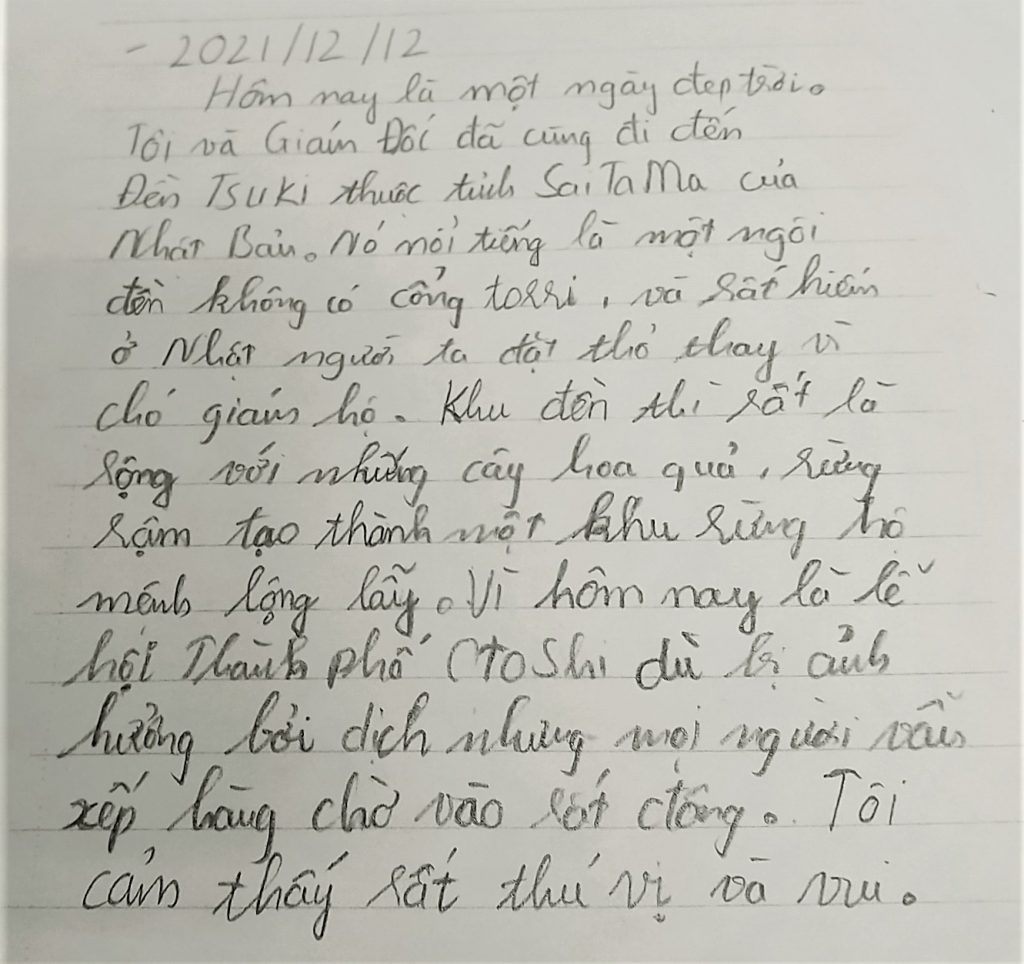 - 2021/12/12
Hôm nay là một ngày đẹp trời.
Tôi và Giám Đốc đã cùng đi đến
Đền TSUKI thuộc tỉnh SaiTaMa của
Nhật Bản. Nó nổi tiếng là một ngôi
đền không có cổng torri, và rất hiếm
ở Nhật người ta đặt thỏ thay vì
chó giám hộ. Khu đền thì rất là
rộng với những cây hoa quả, rừng
rậm tạo thành một khu rừng hộ
mệnh lộng lẫy. Vì hôm nay là lễ
hội Thành phố (ToShi dù bị ảnh
hưởng bởi dịch nhưng mọi người vẫn
xếp hàng chờ vào rất đông. Tôi
cảm thấy rất thú vị và vui.